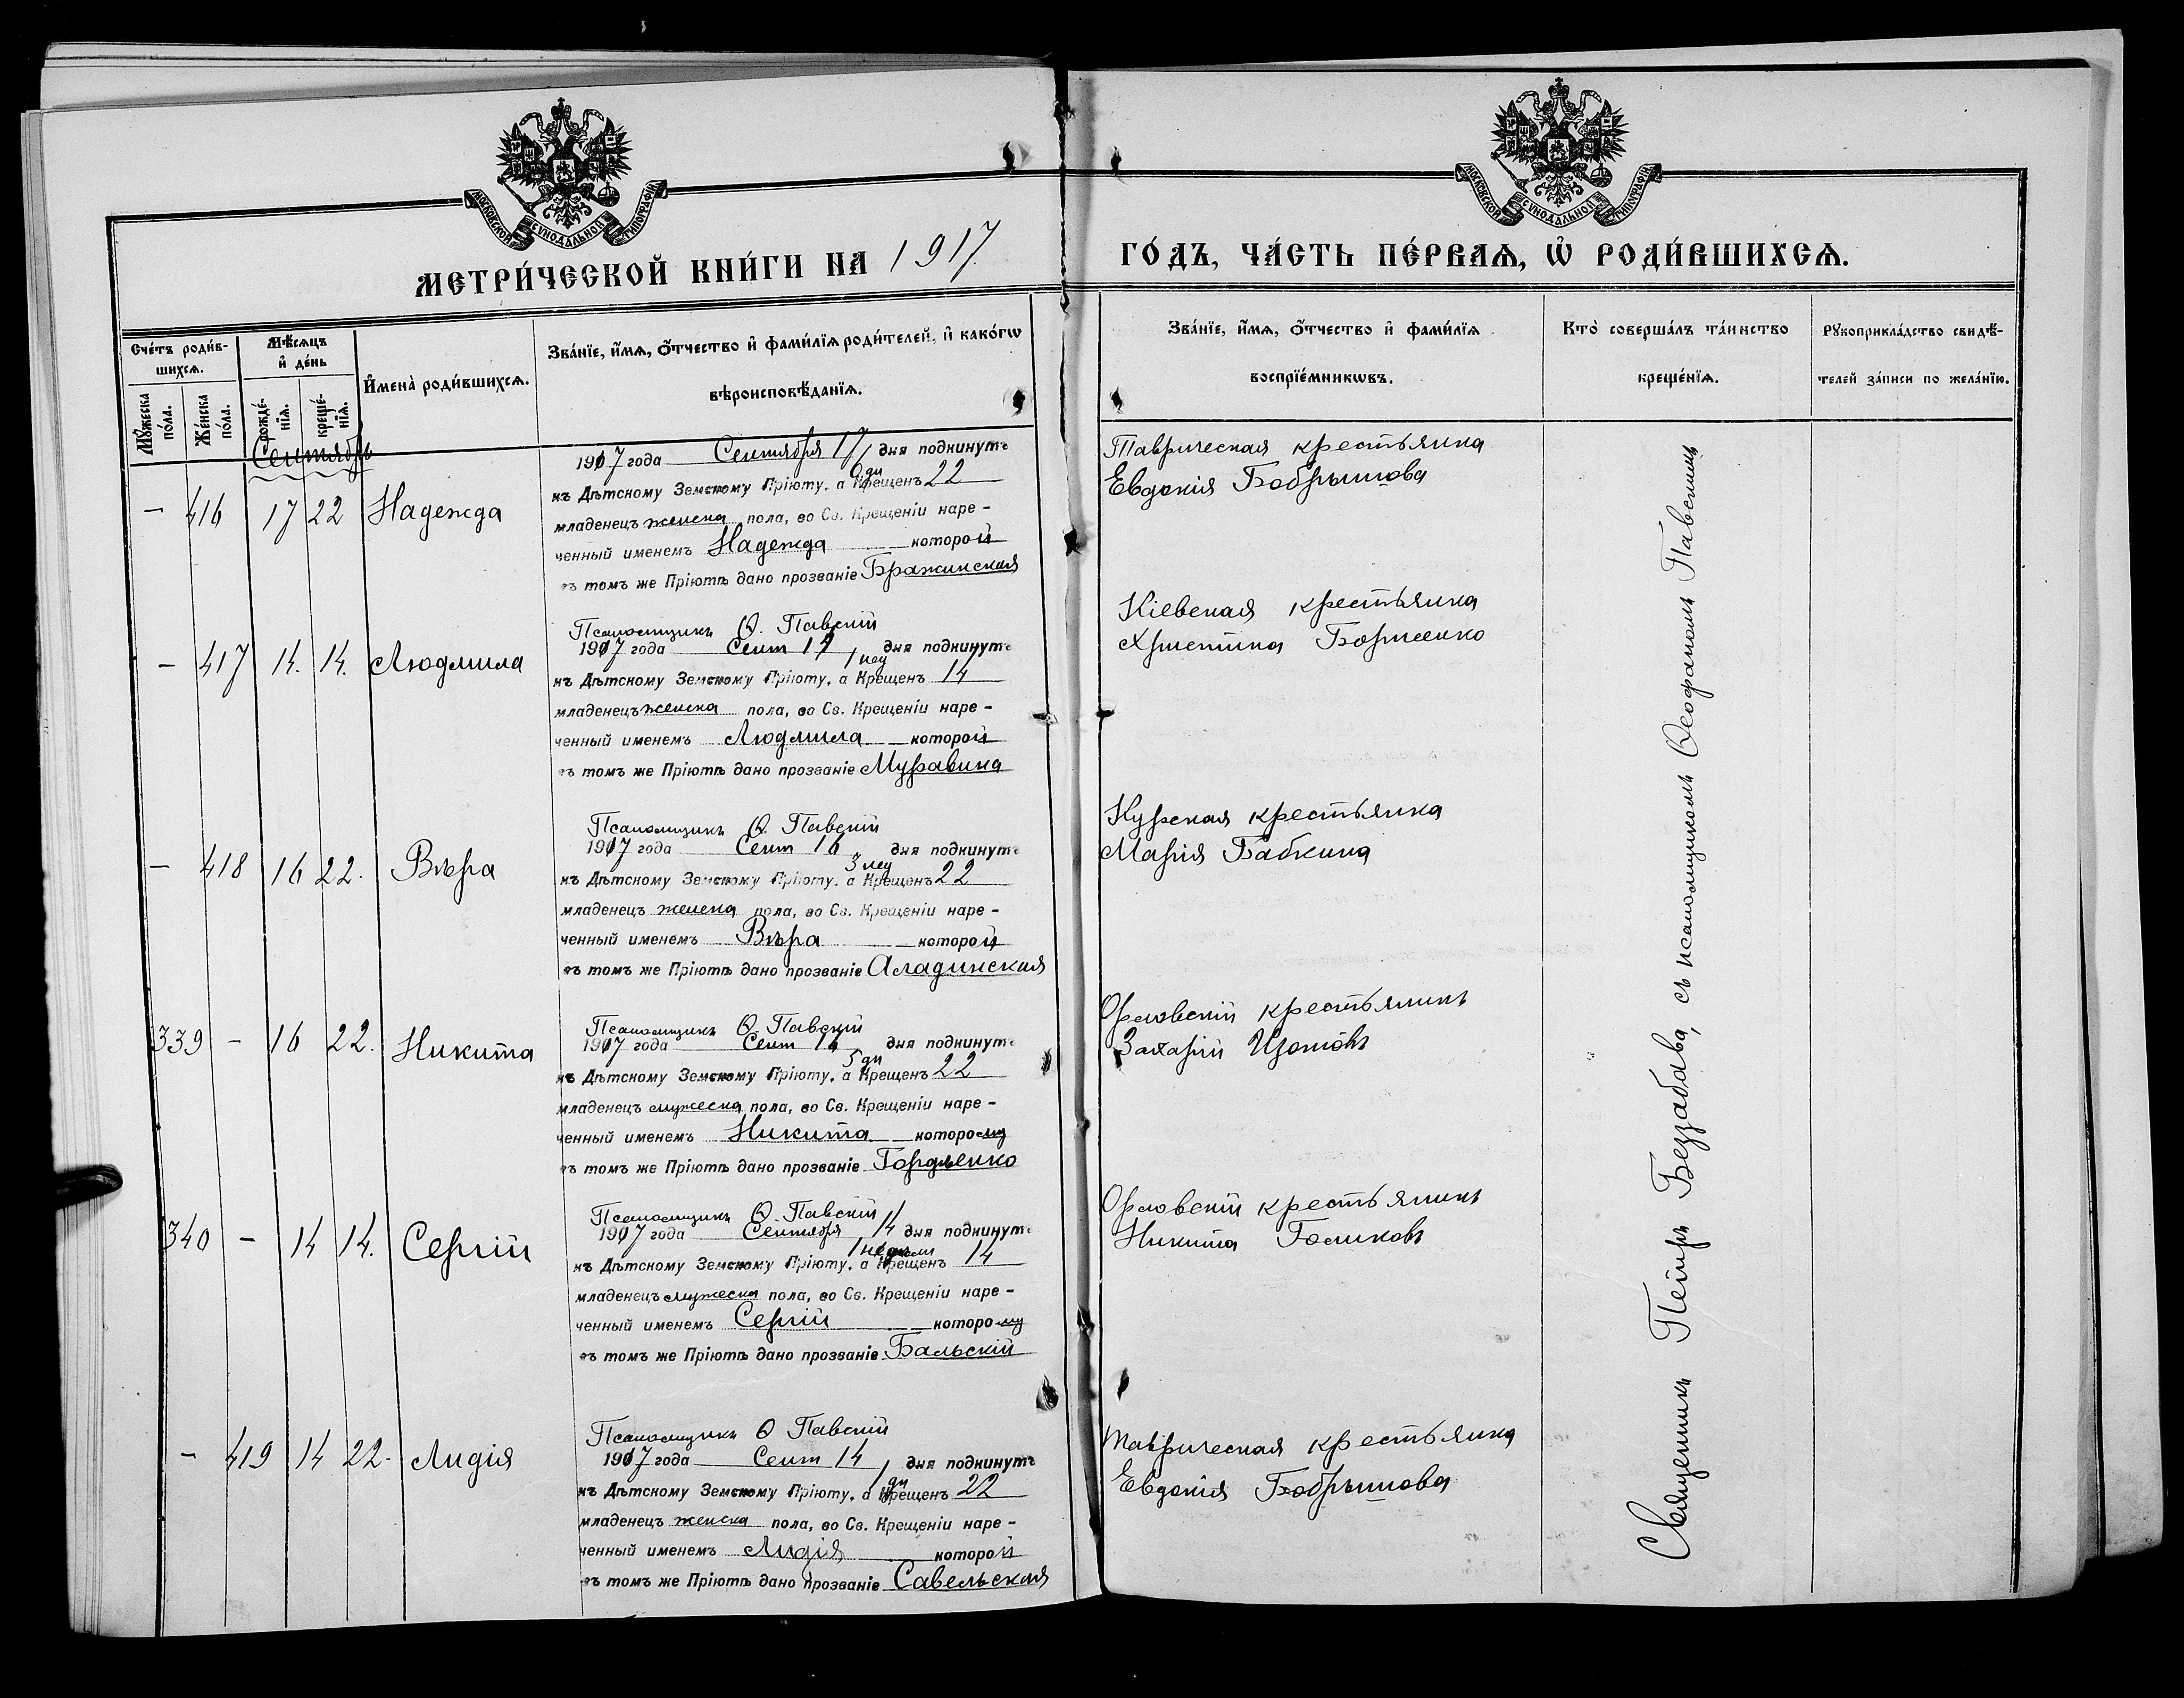 МОСКОВСКОЙ СУНОДАЛЬНОЙ ТИПОГРАФІИ
МОСКОВСКОЙ СУНОДАЛЬНОЙ ТИПОГРАФІИ
МЕТРИ́ЧЕСКОЙ КНИ́ГИ НА 1917 ГО́ДЪ, ЧА́СТЬ ПЕ́РВАѦ, Ѡ҆ РОДИ́ВШИХСѦ.
Сче́тъ роди́в-
шихсѧ.
Мꙋ́жеска по́ла.
Же́нска по́ла.
Мѣ́сѧцъ
и҆ де́нь
рожде́-
нїѧ.
креще́-
нїѧ.
И҆мена̀ роди́вшихсѧ.
Зва́нїе, и҆́мѧ, ѻ҆́тчество и҆ фами́лїѧ роди́телей, и҆ како́гѡ
вѣроисповѣ́данїѧ.
Зва́нїе, и҆́мѧ, ѻ҆́тчество и҆ фами́лїѧ
воспрїе́мникѡвъ.
Кто̀ соверша́лъ та́инство
креще́нїѧ.
Рꙋкоприкла́дство свидѣ́-
телей за́писи по жела́нїю.
Сентябрь
— 416 17 22 Надежда
1917 года Сентября 17 дня подкинутъ
къ Дѣтскому Земскому Пріюту, а Крещенъ 22
младенецъ женска пола, во Св. Крещеніи наре-
ченный именемъ Надежда которой
въ томъ же Пріютѣ дано прозваніе Бражинская
Таврическая крестьянка
Евдокія Бобрышова
Псаломщикъ Ѳ. Павскій
— 417 14. 14. Людмила
1917 года Сент 14 дня подкинутъ
1 нед
къ Дѣтскому Земскому Пріюту, а Крещенъ 14
младенецъ женска пола, во Св. Крещеніи наре-
ченный именемъ Людмила которой
въ томъ же Пріютѣ дано прозваніе Муравина
Кіевская крестьянка
Христина Борщенко
Псаломщикъ Ѳ. Павскій
— 418 16 22. Вѣра
1917 года Сент 16 дня подкинутъ
3 нед
къ Дѣтскому Земскому Пріюту, а Крещенъ 22
младенецъ женска пола, во Св. Крещеніи наре-
ченный именемъ Вѣра которой
въ томъ же Пріютѣ дано прозваніе Аладинская
Курская крестьянка
Марія Бабкина
Псаломщикъ Ѳ. Павскій
339 — 16 22. Никита
1917 года Сент 16 дня подкинутъ
5 дн
къ Дѣтскому Земскому Пріюту, а Крещенъ 22
младенецъ мужеска пола, во Св. Крещеніи наре-
ченный именемъ Никита которому
въ томъ же Пріютѣ дано прозваніе Гордѣенко
Орловскій крестьянинъ
Захарій Изотовъ
Псаломщикъ Ѳ. Павскій
340 — 14 14. Сергій
1917 года Сентября 14 дня подкинутъ
къ Дѣтскому Земскому Пріюту, а Крещенъ 14
младенецъ мужеска пола, во Св. Крещеніи наре-
ченный именемъ Сергій которому
въ томъ же Пріютѣ дано прозваніе Бальскій
Орловскій крестьянинъ
Никита Голиковъ
Псаломщикъ Ѳ Павскій
— 419 14 22. Лидія
1917 года Сент 14 дня подкинутъ
1 дн
къ Дѣтскому Земскому Пріюту, а Крещенъ 22
младенецъ женска пола, во Св. Крещеніи наре-
ченный именемъ Лидія которой
въ томъ же Пріютѣ дано прозваніе Савельская
Таврическая крестьянка
Евдокія Бобрышова
Священникъ Петръ Беззабава, съ псаломщикомъ Ѳеофаномъ Павскимъ